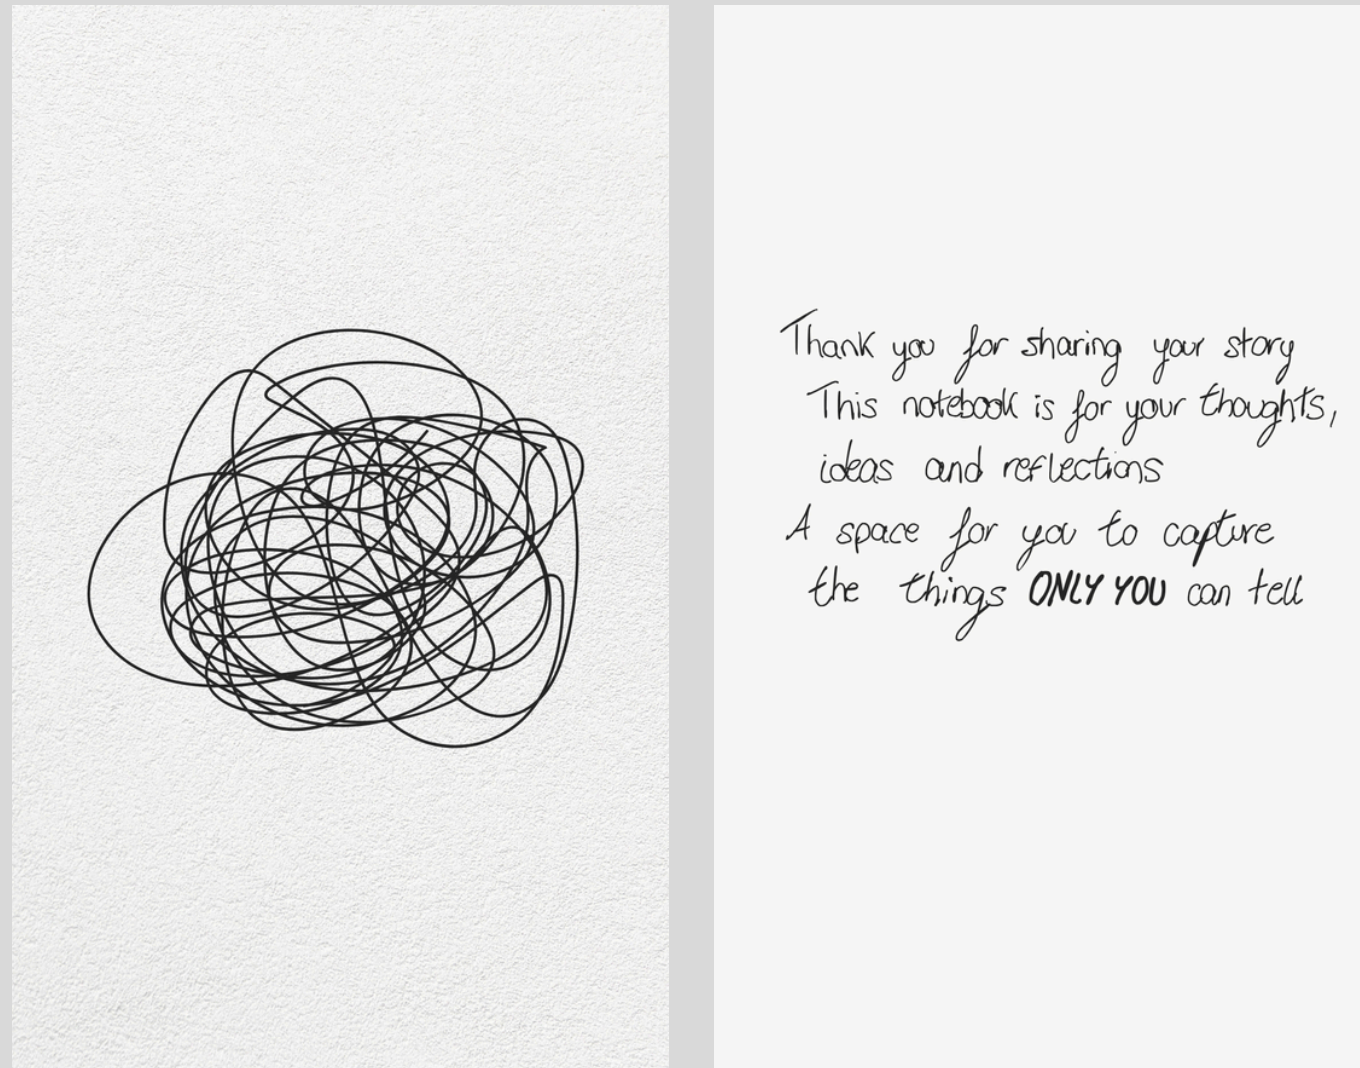 Thank you for sharing your story
This notebook is for your thoughts,
ideas and reflections
A space for you to capture
the things ONLY YOU can tell